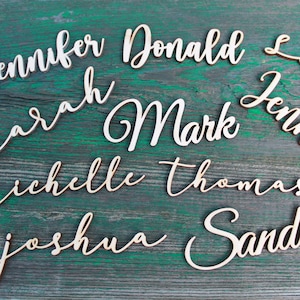 ennifer Donald L
arah Jenn
Mark
ichelle Thomas
joshua Sand